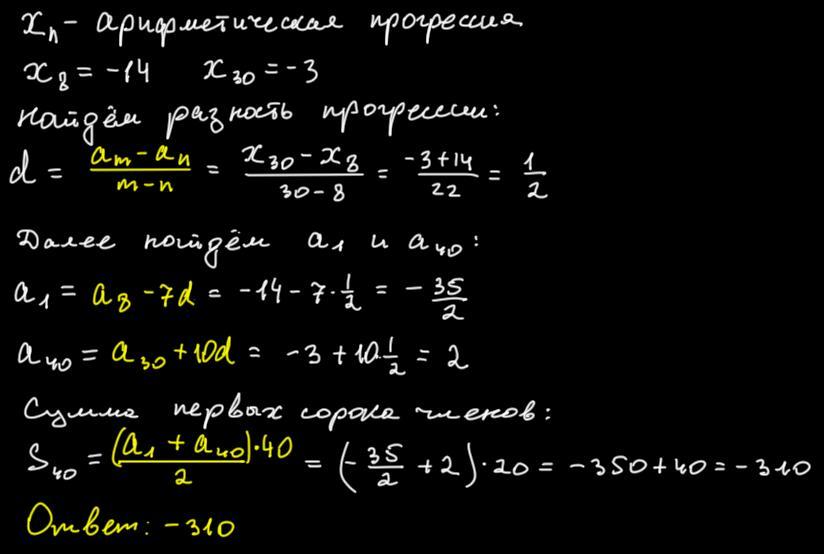 xₙ - арифметическая прогрессия
x₈ = -14 x₃₀ = -3
Найдём разность прогрессии:
d = (aₘ - aₙ)/(m - n) = (x₃₀ - x₈)/(30 - 8) = (-3 + 14)/22 = 1/2
Далее найдём a₁ и a₄₀:
a₁ = a₈ - 7d = -14 - 7·1/2 = -35/2
a₄₀ = a₃₀ + 10d = -3 + 10·1/2 = 2
Сумма первых сорока членов:
S₄₀ = (a₁ + a₄₀)·40/2 = (-35/2 + 2)·20 = -350 + 40 = -310
Ответ: -310